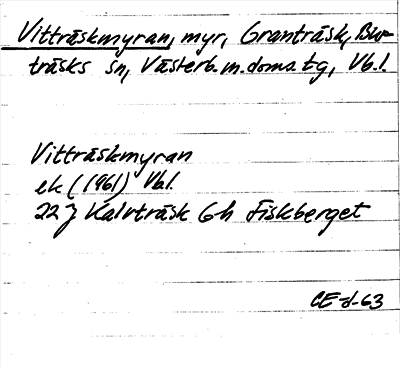 Vitträskmyran, myr, Granträsk, Bur-
träsks sn, Västerb. m. doms. tg, Vb.l.
Vitträskmyran
ek (1961) Vb.l.
22 J Kalvträsk 6h Fiskberget
CE-d-63